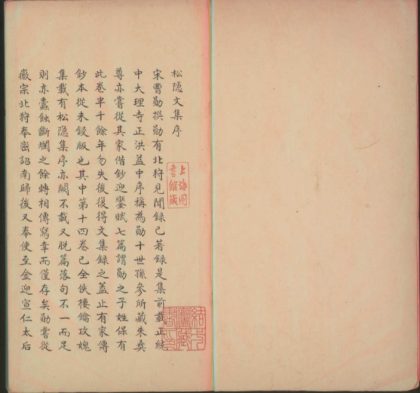 松隱文集序
宋曹勛撰勛有北狩見聞錄已著錄是集前有正統
中大理寺正洪益中序稱為勛十世孫參所藏朱彝
尊亦嘗從其家借鈔迎鑾賦七篇謂勛之子姓保有
此卷半千餘年勿失後復得文集錄之蓋止有家傳
鈔本從未鋟版也其中第十四卷已全佚樓鑰攻媿
集載有松隱集序亦闕不載又脫篇落句不一而足
則亦蠹蝕斷爛之餘轉相傳寫幸而僅存矣勛嘗從
徽宗北狩奉密詔南歸後又奉使至金迎宣仁太后
上海圖
書館藏